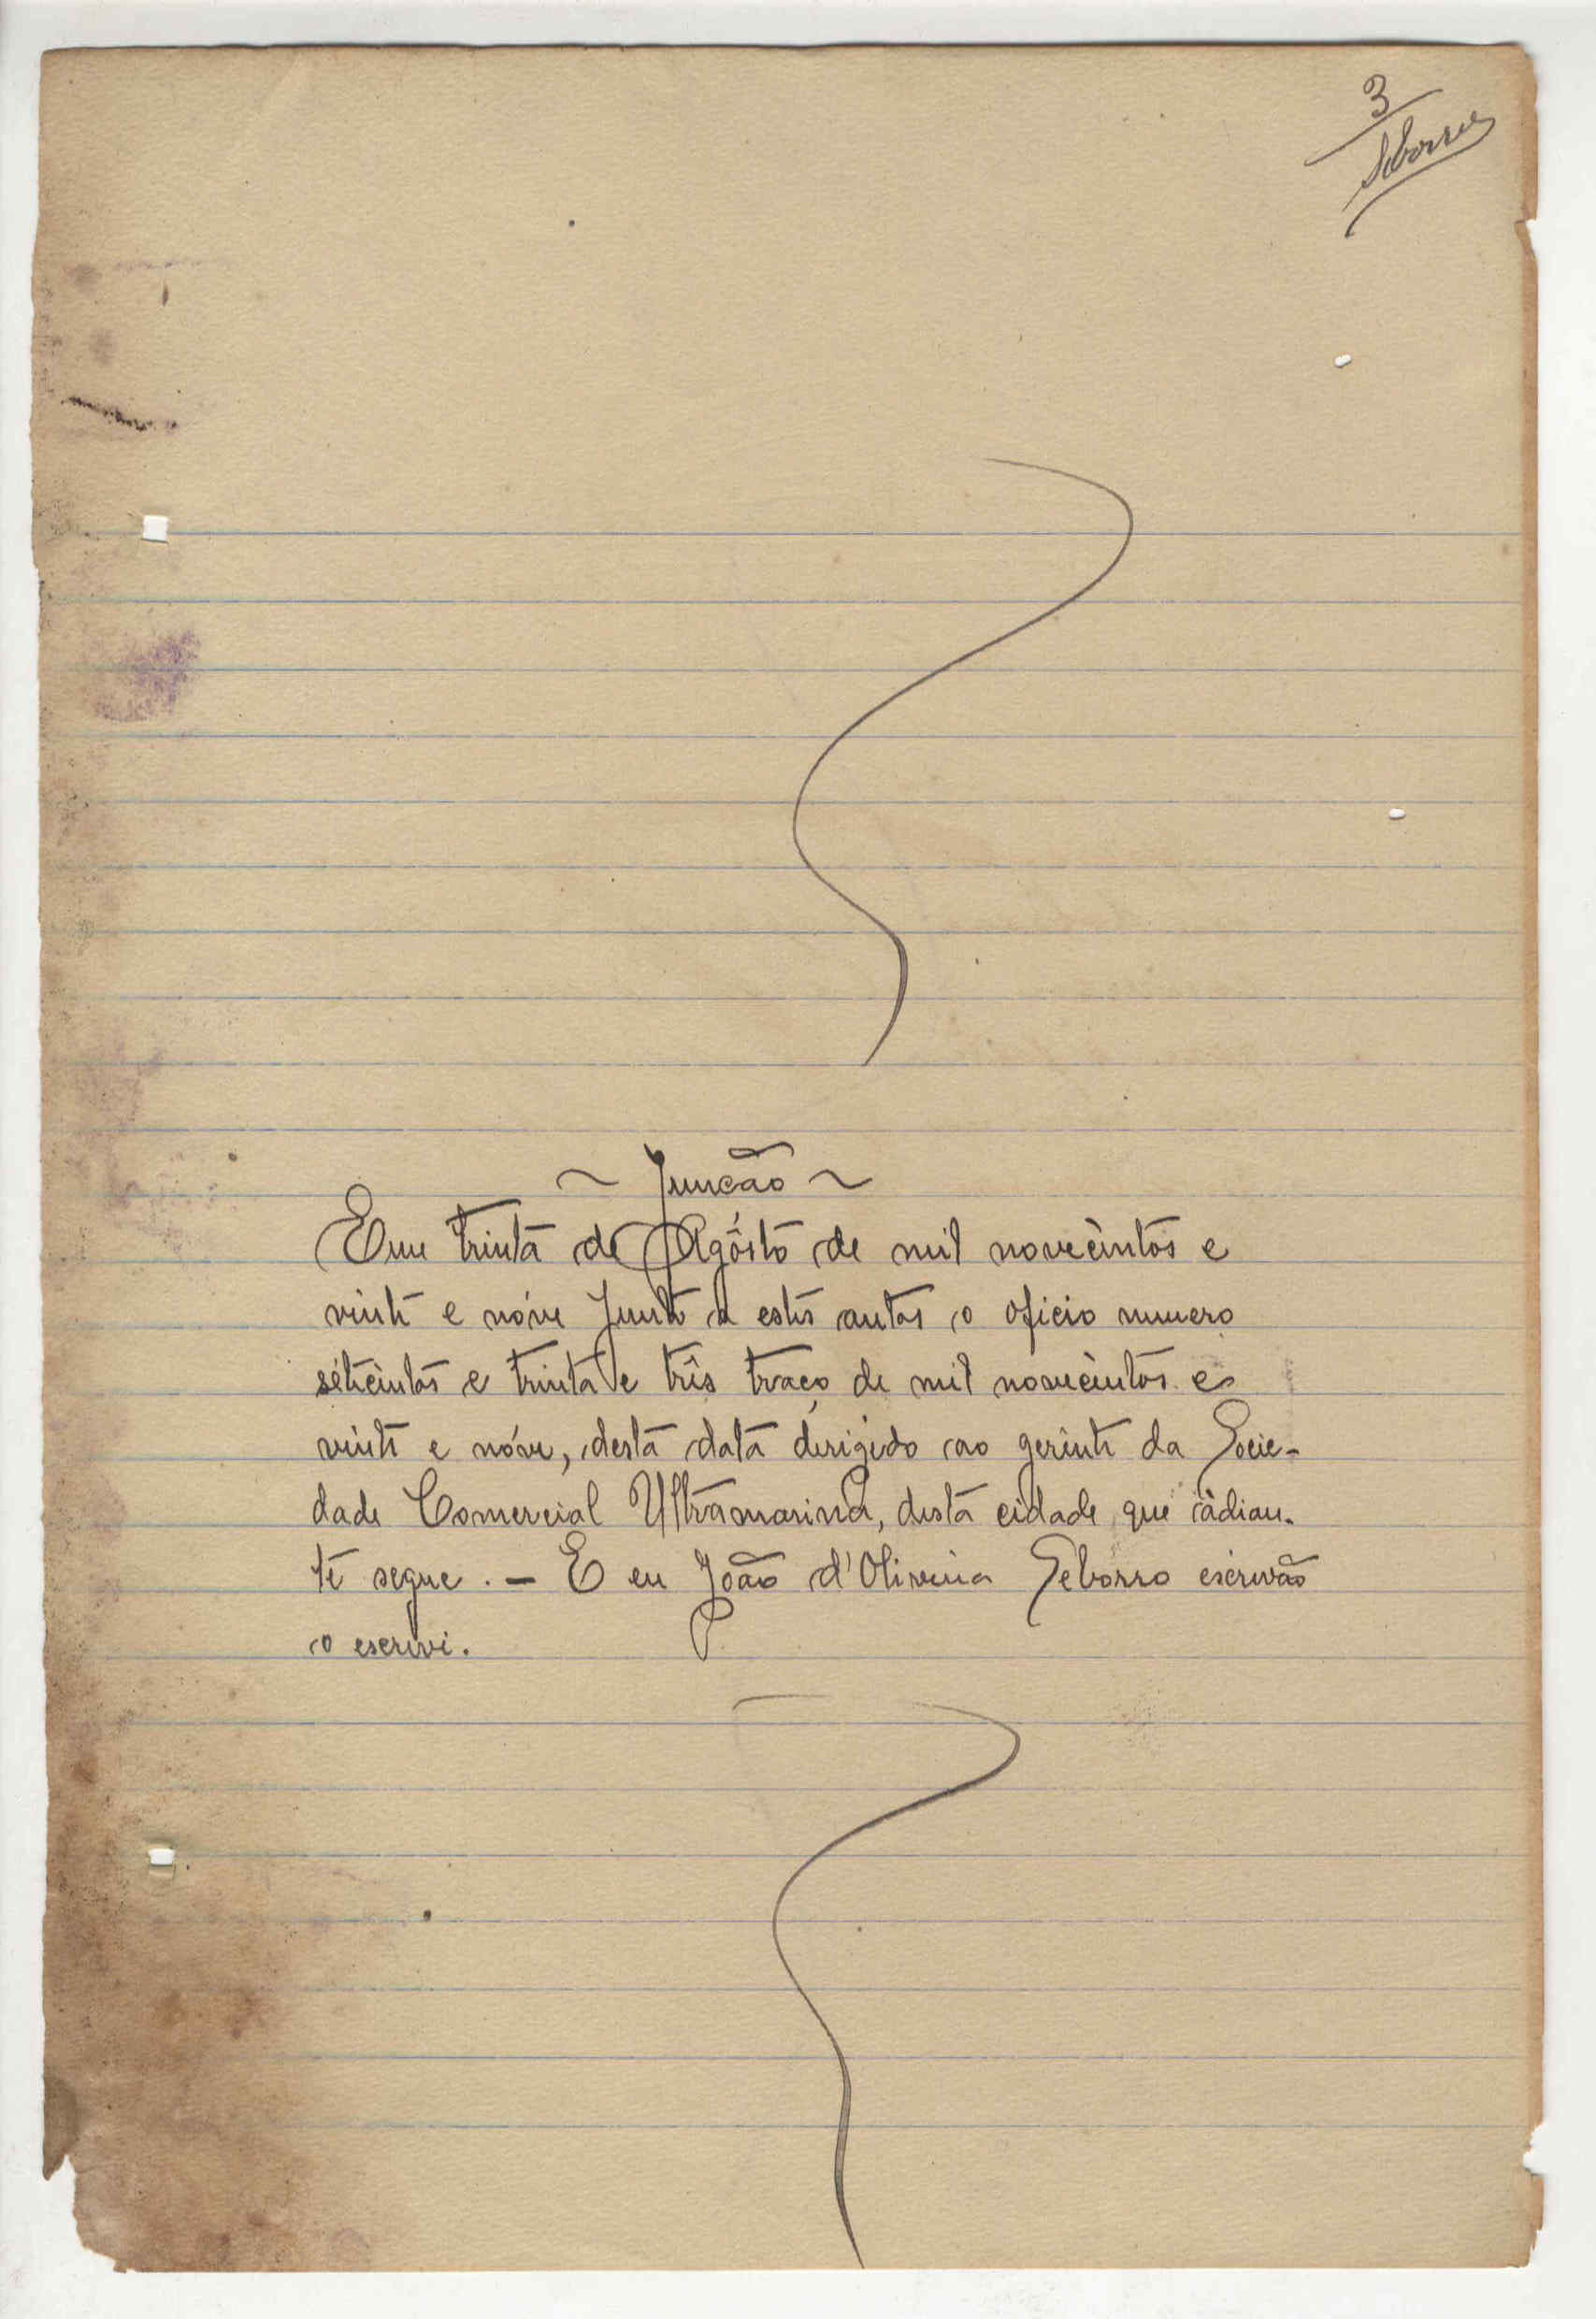 3
Seborro
~ Junção ~
Em trinta de Agôsto de mil novecèntos e
vinte e nóve junto a estes autos o oficio numero
sétecèntos e trinta e três traço de mil novecèntos e
vinte e nóve, desta data dirigido ao gerênte da Socie-
dade Comercial Ultramarina, desta cidade que àdian-
te segue. — E eu João d'Oliveira Seborro escrivão
o escrevi.